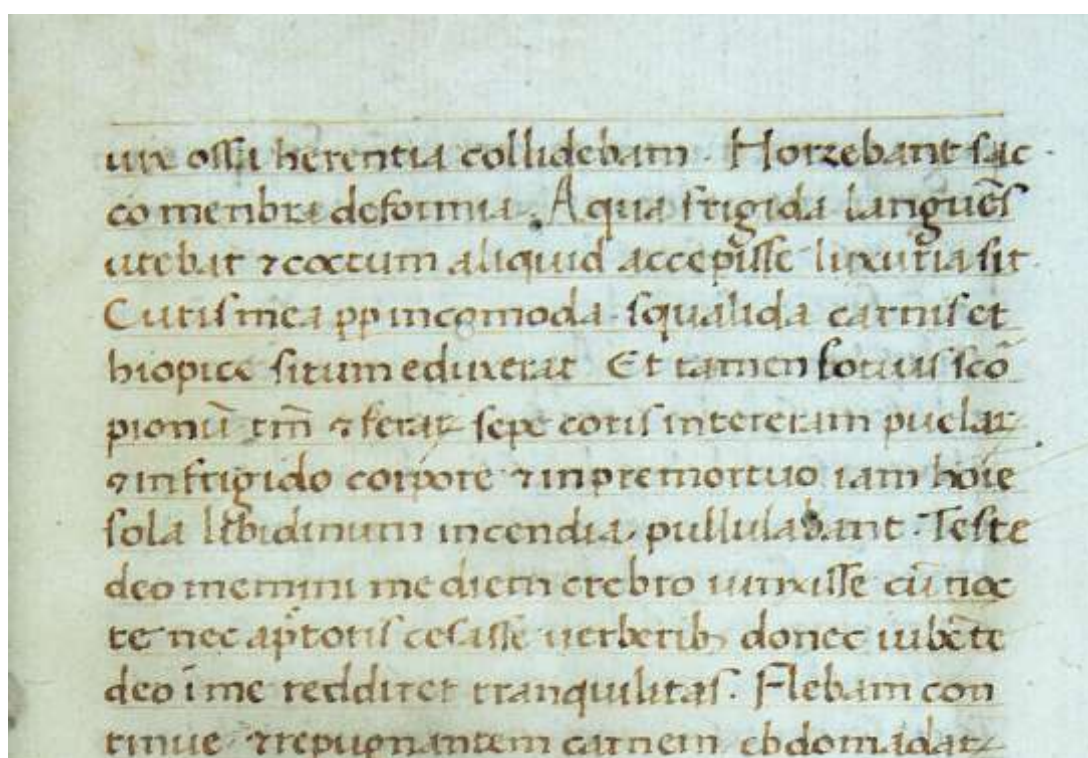 uix ossa herentia collidebam. Horrebant sac
co menbra deformia. Aqua frigida languēs
utebar ⁊ coctum aliquid accepisse luxuria sit.
Cutis mea pp incomoda squalida carnis et
hiopice situm eduxerat Et tamen socius sco
pionū tm̄ ⁊ ferar sepe coris intereram puelar
⁊ in frigido corpore ⁊ in premortuo iam hoie
sola libidinum incendia pullulabant. Teste
deo memini me diem crebro iunxisse cū noc
te nec a pectoris cesasse uerberib; donec iubēte
deo ī me reddiret tranquilitas. Flebam con
tinue ⁊ repugnantem carnem ebdomadar